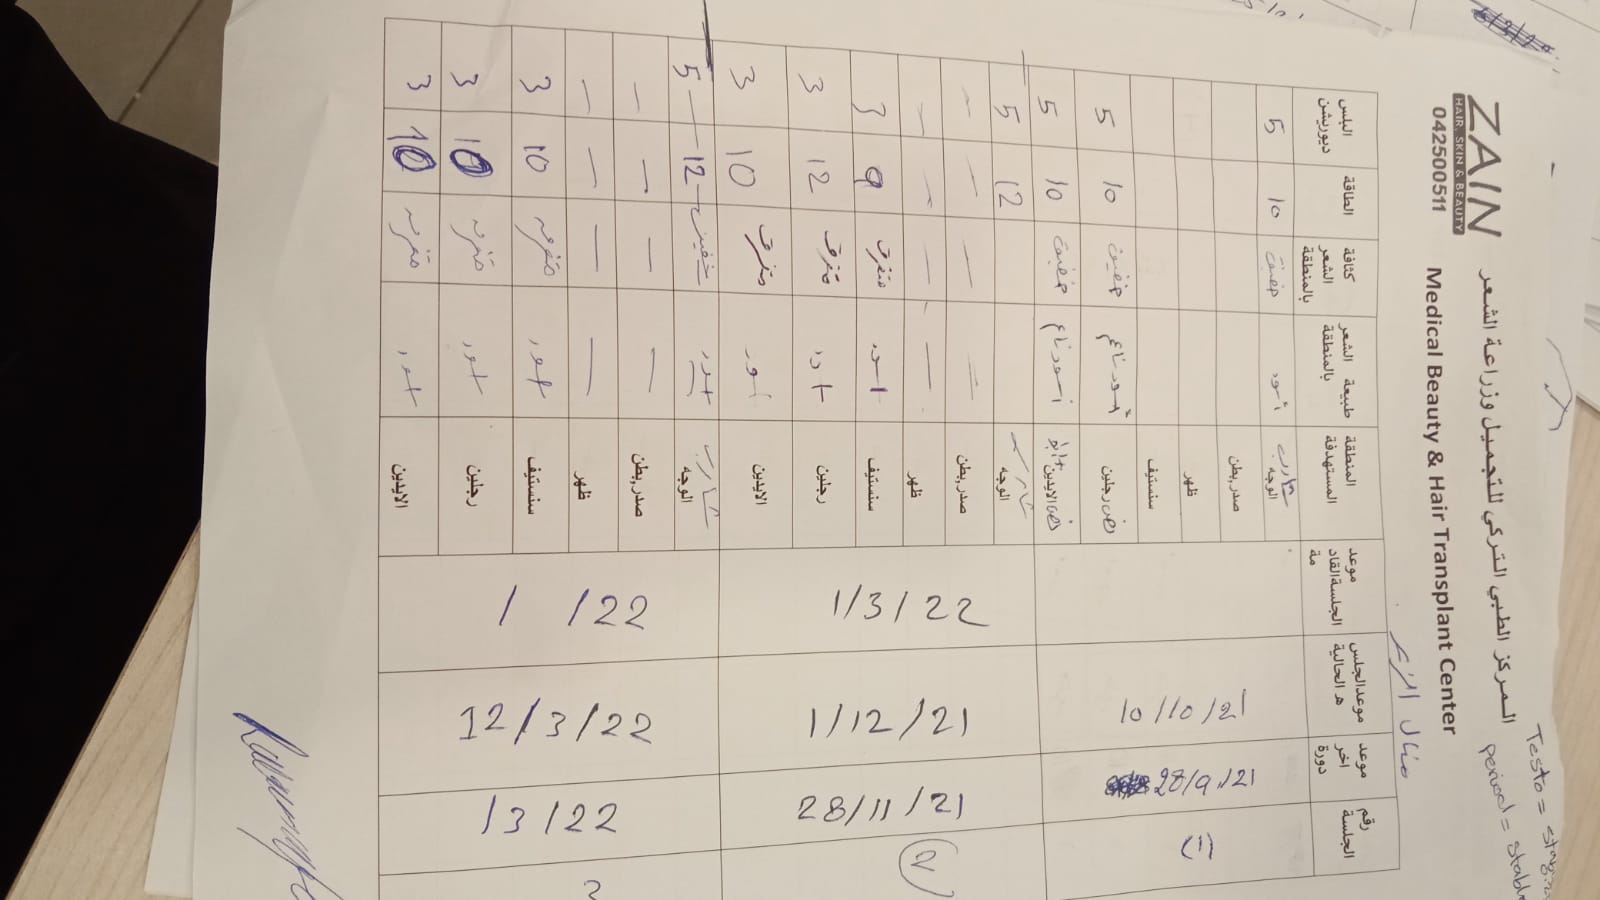 ZAIN
HAIR, SKIN & BEAUTY
042500511
المركز الطبي التركي للتجميل وزراعة الشعر
Medical Beauty & Hair Transplant Center
Testo =
period = stable
منال
رقم الجلسة | موعد اخر دورة | موعد الجلسة الحالية | موعد الجلسة القادمة | المنطقة المستهدفة | طبيعة الشعر بالمنطقة | كثافة الشعر بالمنطقة | الطاقة | البلس ديوريشن
(1) | 28/9/21 | 10/10/21
شارب الوجه | أسود | خفيف | 10 | 5
صدر,بطن
ظهر
سنستيف
نص رجلين | أسود ناعم | خفيف | 10 | 5
نص الايدين + ابط | أسود ناعم | خفيف | 10 | 5
2 | 28/11/21 | 1/12/21 | 1/3/22
شارب الوجه | 12 | 5
صدر,بطن | — | — | — | —
ظهر | — | — | — | —
سنستيف | اسود | متفرق | 9 | 3
رجلين | اسود | متفرق | 12 | 3
الايدين | اسود | متفرق | 10 | 3
3 | /3/22 | 12/3/22 | / /22
شارب الوجه | اسود | خفيف | 12 | 5
صدر,بطن | — | — | — | —
ظهر | — | — | — | —
سنستيف | اسود | متفرق | 10 | 3
رجلين | اسود | متفرق | 10 | 3
الايدين | اسود | متفرق | 10 | 3